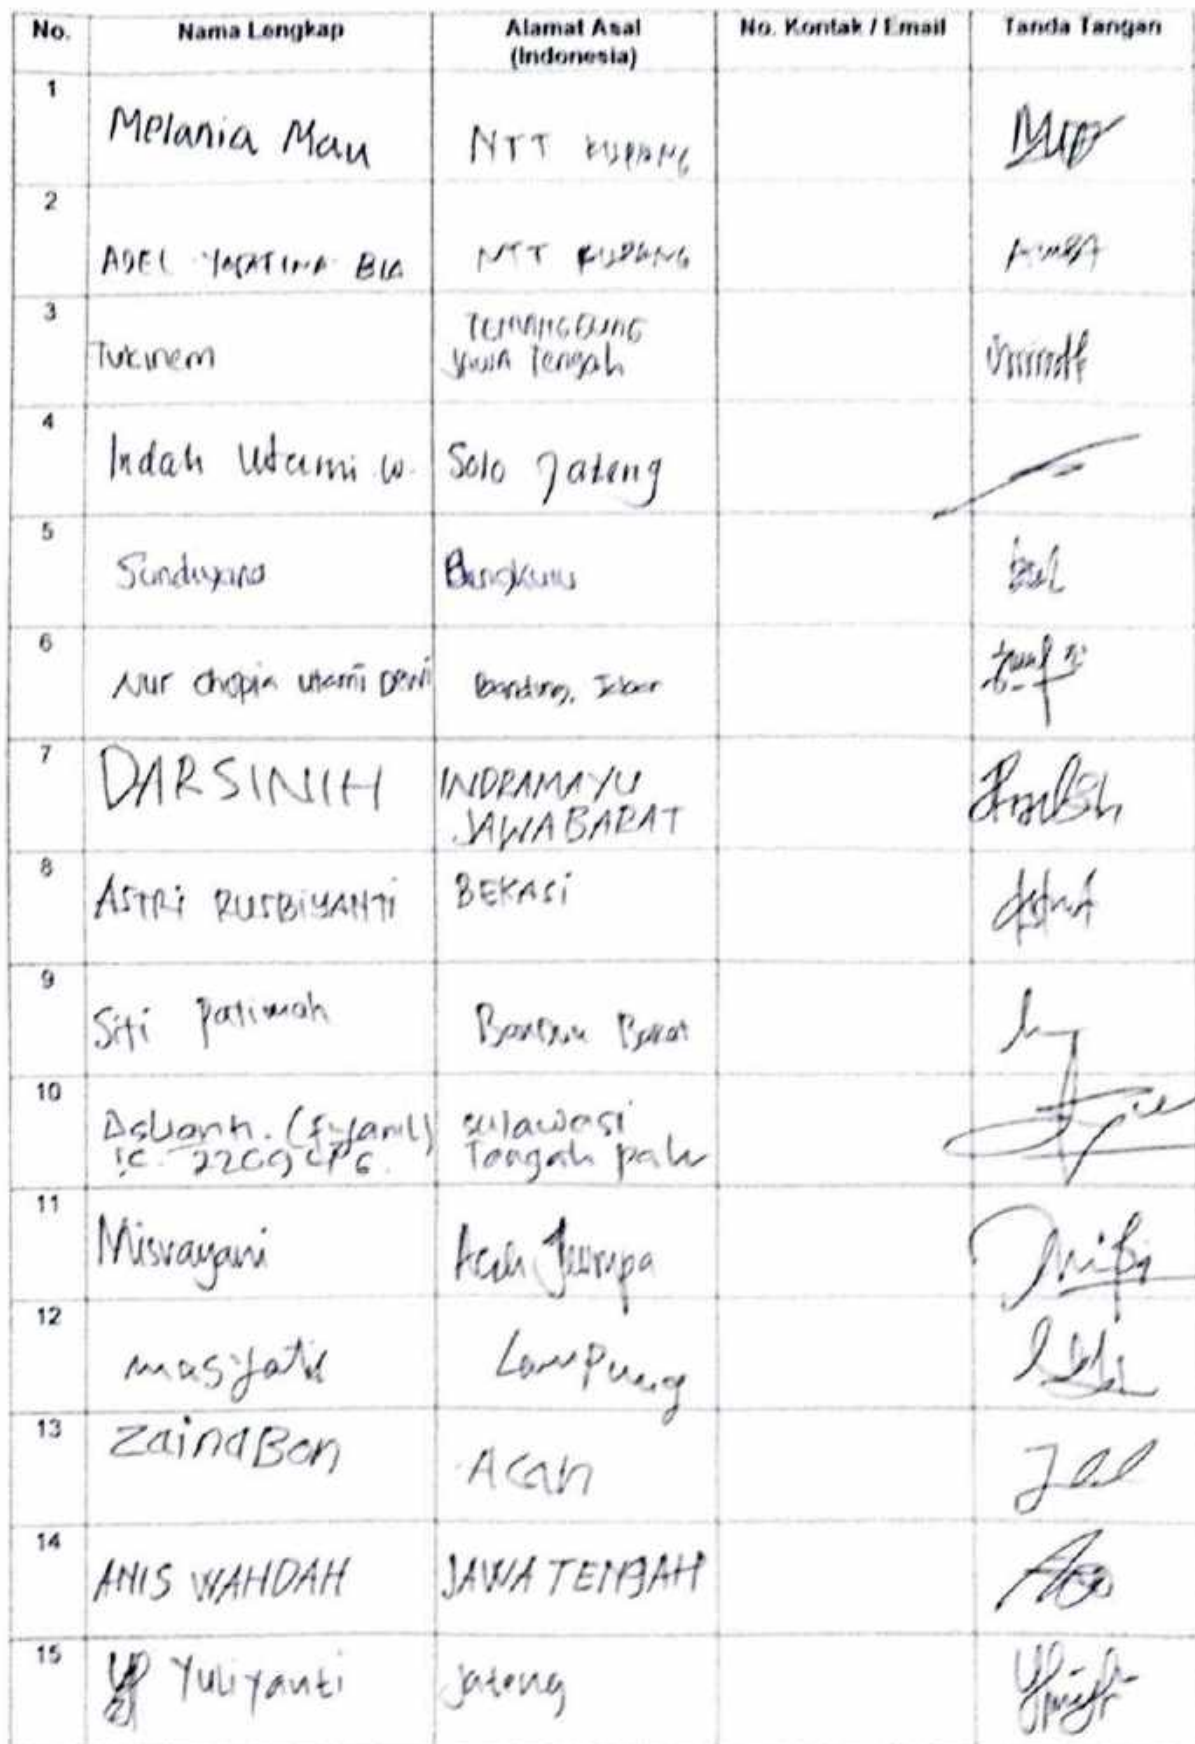 No. Nama Lengkap Alamat Asal No. Kontak / Email Tanda Tangan
(Indonesia)
1
Melania Mau NTT KUPANG
2
ADEL YOFATINA BIA NTT KUPANG
3
TEMANGGUNG
Tukinem Jawa Tengah
4
Indah Utami W. Solo Jateng
5
Bengkulu
6
Nur Chopia Utami Dewi Bandung, Jabar
7
DARSINIH INDRAMAYU
JAWA BARAT
8
ASTRi RUSBiYANTi BEKASi
9
Siti Patimah Bandung Barat
10
sulawesi
Tengah palu
11
Misrayani Aceh Jeumpa
12
masyati Lampung
13
ZainaBon
Aceh
14
ANIS WAHDAH JAWA TENGAH
15
Yuliyanti Jateng